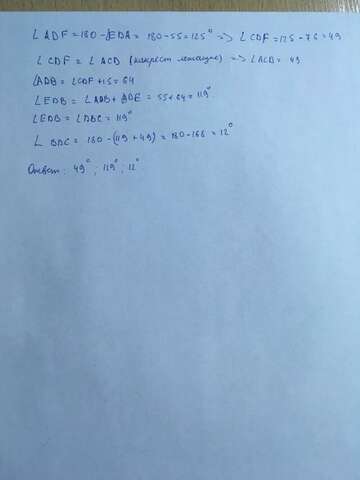 ∠ADF = 180 - ∠EDA = 180 - 55 = 125° => ∠CDF = 125 - 76 = 49
∠CDF = ∠ACD (накрест лежащие) => ∠ACD = 49
∠ADB = ∠CDF + 15 = 64
∠EDB = ∠ADB + ∠ADE = 55 + 64 = 119°
∠EDB = ∠DBC = 119°
∠BDC = 180 - (119 + 49) = 180 - 168 = 12°
Ответ: 49°; 119°; 12°